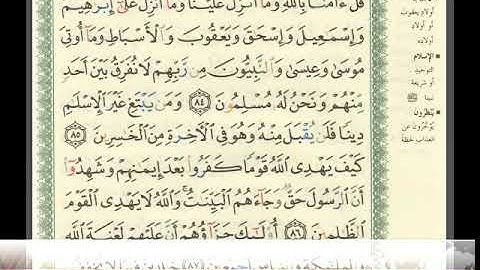 قُلْ ءَامَنَّا بِٱللَّهِ وَمَآ أُنزِلَ عَلَيْنَا وَمَآ أُنزِلَ عَلَىٰٓ إِبْرَٰهِيمَ
وَإِسْمَٰعِيلَ وَإِسْحَٰقَ وَيَعْقُوبَ وَٱلْأَسْبَاطِ وَمَآ أُوتِىَ
مُوسَىٰ وَعِيسَىٰ وَٱلنَّبِيُّونَ مِن رَّبِّهِمْ لَا نُفَرِّقُ بَيْنَ أَحَدٍ
مِّنْهُمْ وَنَحْنُ لَهُۥ مُسْلِمُونَ ٨٤ وَمَن يَبْتَغِ غَيْرَ ٱلْإِسْلَٰمِ
دِينًا فَلَن يُقْبَلَ مِنْهُ وَهُوَ فِى ٱلْأَخِرَةِ مِنَ ٱلْخَٰسِرِينَ ٨٥
كَيْفَ يَهْدِى ٱللَّهُ قَوْمًا كَفَرُوا۟ بَعْدَ إِيمَٰنِهِمْ وَشَهِدُوٓا۟
أَنَّ ٱلرَّسُولَ حَقٌّ وَجَآءَهُمُ ٱلْبَيِّنَٰتُ وَٱللَّهُ لَا يَهْدِى ٱلْقَوْمَ
ٱلظَّٰلِمِينَ ٨٦ أُو۟لَٰٓئِكَ جَزَآؤُهُمْ أَنَّ عَلَيْهِمْ لَعْنَةَ ٱللَّهِ
أولاد يعقوب
أو أولاد
أولاده
الإسلام
التوحيد
أو شريعة
نبينا
يُنظَرُون
يُؤخَّرُون عن
العذاب لحظة